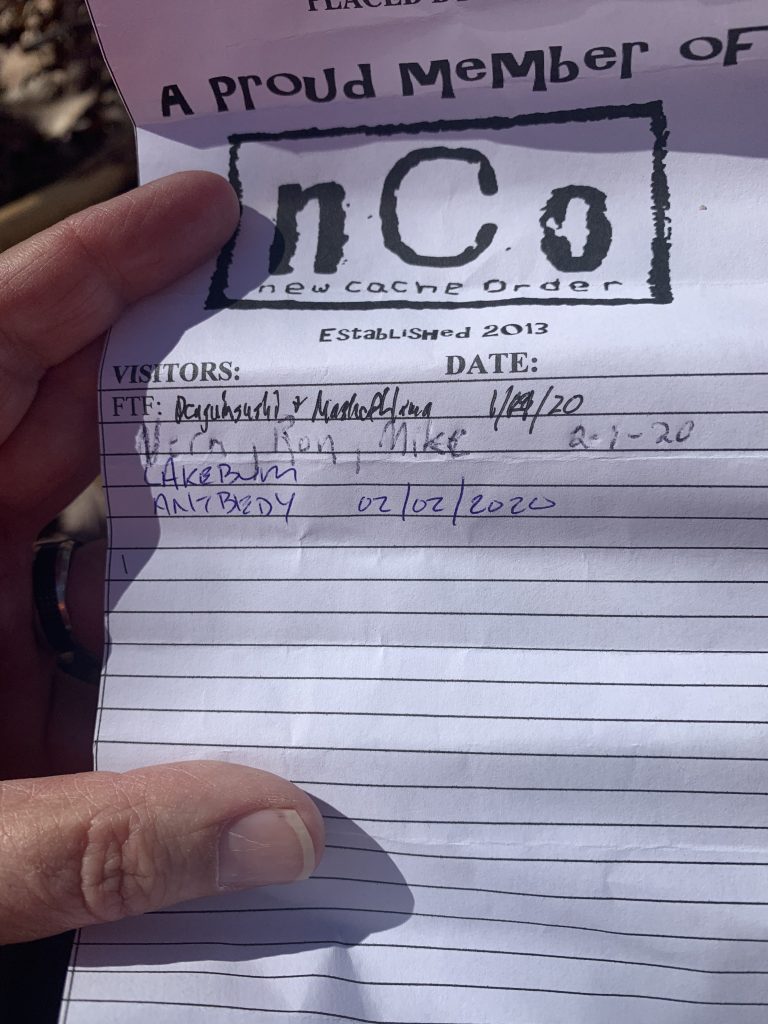 PLACED B
A PROUD MEMBER OF
nCo
new cache order
Established 2013
VISITORS: DATE:
FTF: & /20
Vern, Ron, Mike 2-1-20
LAKEBUM
ANTBEDY 02/02/2020